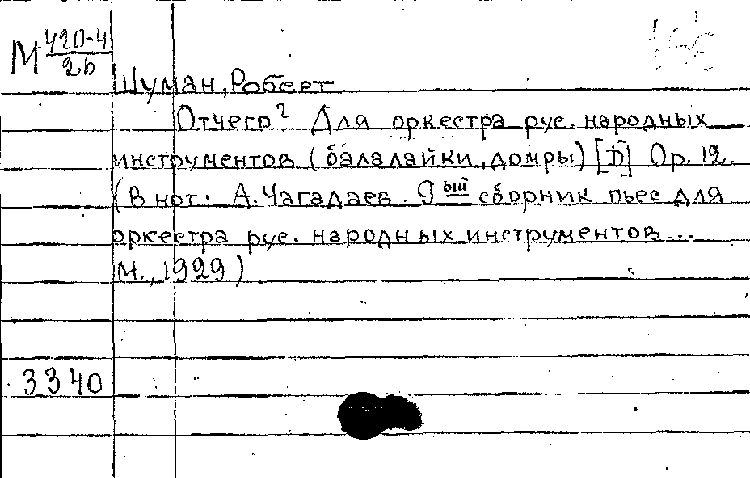 М 420-4
26
Шуман, Роберт
Отчего? Для оркестра рус. народных
инструментов (балалайки, домры) [П] Ор. 12
(В нот: А. Чагадаев. 9ый сборник пьес для
оркестра рус. народных инструментов...
М., 1929)
3340